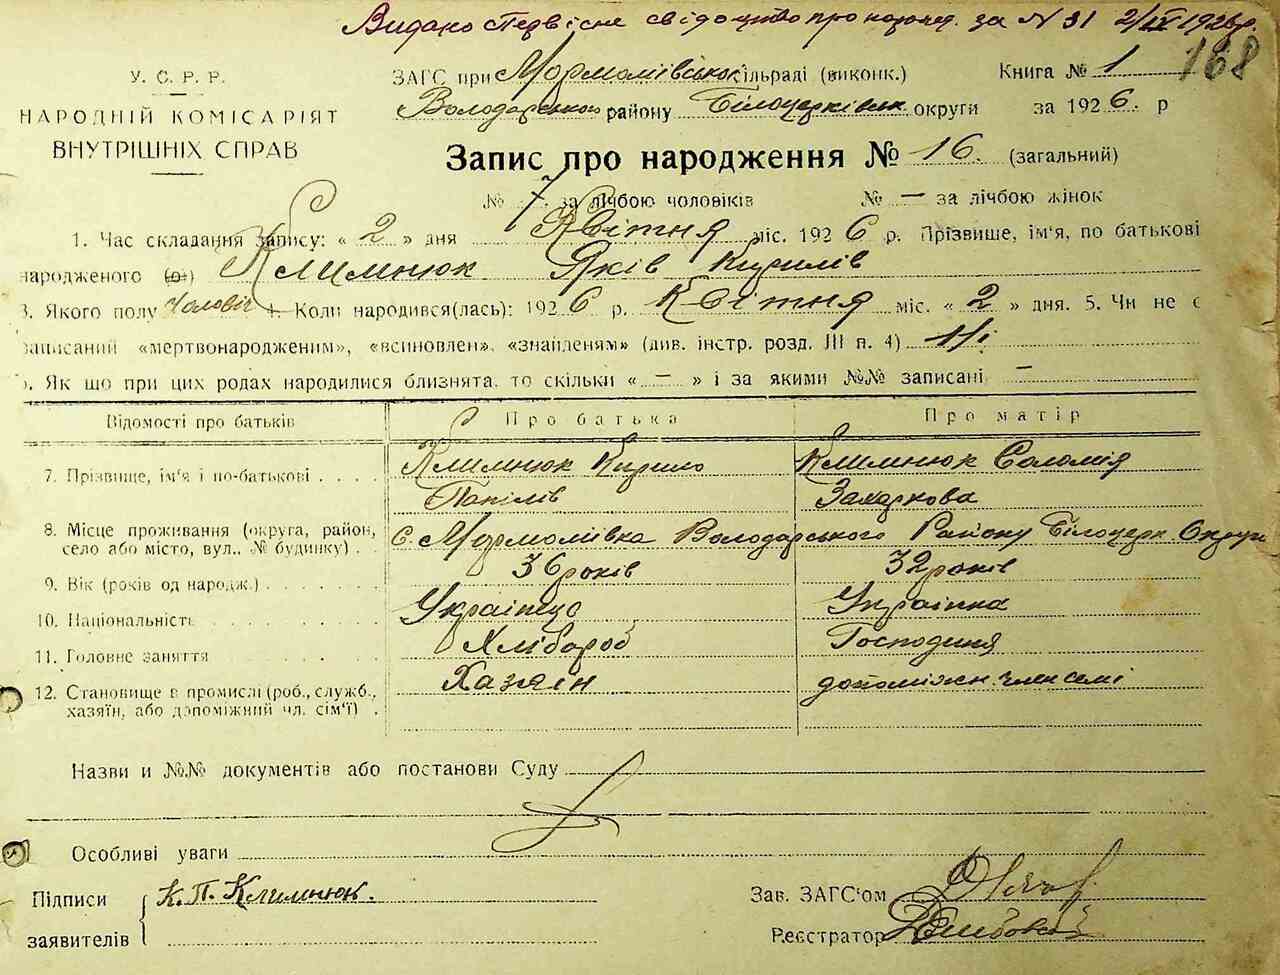 Видано Первісне свідоцтво про народ. за № 31 2/IX 1926 р.
168
У. С. Р. Р.
НАРОДНІЙ КОМІСАРІЯТ
ВНУТРІШНІХ СПРАВ
ЗАГС при Мормоліївської сільраді (виконк.) Книга № 1
Володарського району Білоцерківськ округи за 1926 р
Запис про народження № 16. (загальний)
№ 7 за лічбою чоловіків № — за лічбою жінок
1. Час складання запису: « 2 » дня Квітня міс. 1926 р. Прізвище, ім'я, по батькові
народженого (ої) Климнюк Яків Кирилів
3. Якого полу Чоловіч 4. Коли народився(лась): 1926 р. Квітня міс. « 2 » дня. 5. Чи не є
записаний «мертвонародженим», «всиновлен», «знайденям» (див. інстр. розд. III п. 4) Ні
6. Як що при цих родах народилися близнята, то скільки « — » і за якими №№ записані —
Відомості про батьків Про батька Про матір
7. Прізвище, ім'я і по-батькові . . . . Климнюк Кирило Климнюк Соломія
Захаркова
8. Місце проживання (округа, район,
село або місто, вул., № будинку) . С. Мормоліївка Володарського Району Білоцерк. Округи
9. Вік (років од народж.) 36 років 32 років
10. Національність Українець Українка
11. Головне заняття Хлібороб Господиня
12. Становище в промислі (роб., служб., Хазяїн допоміжн член семі
хазяїн, або допоміжний чл. сім'ї) .
Назви и №№ документів або постанови Суду
Особливі уваги
Підписи К. П. Климнюк.
заявителів
Зав. ЗАГС'ом
Реєстратор